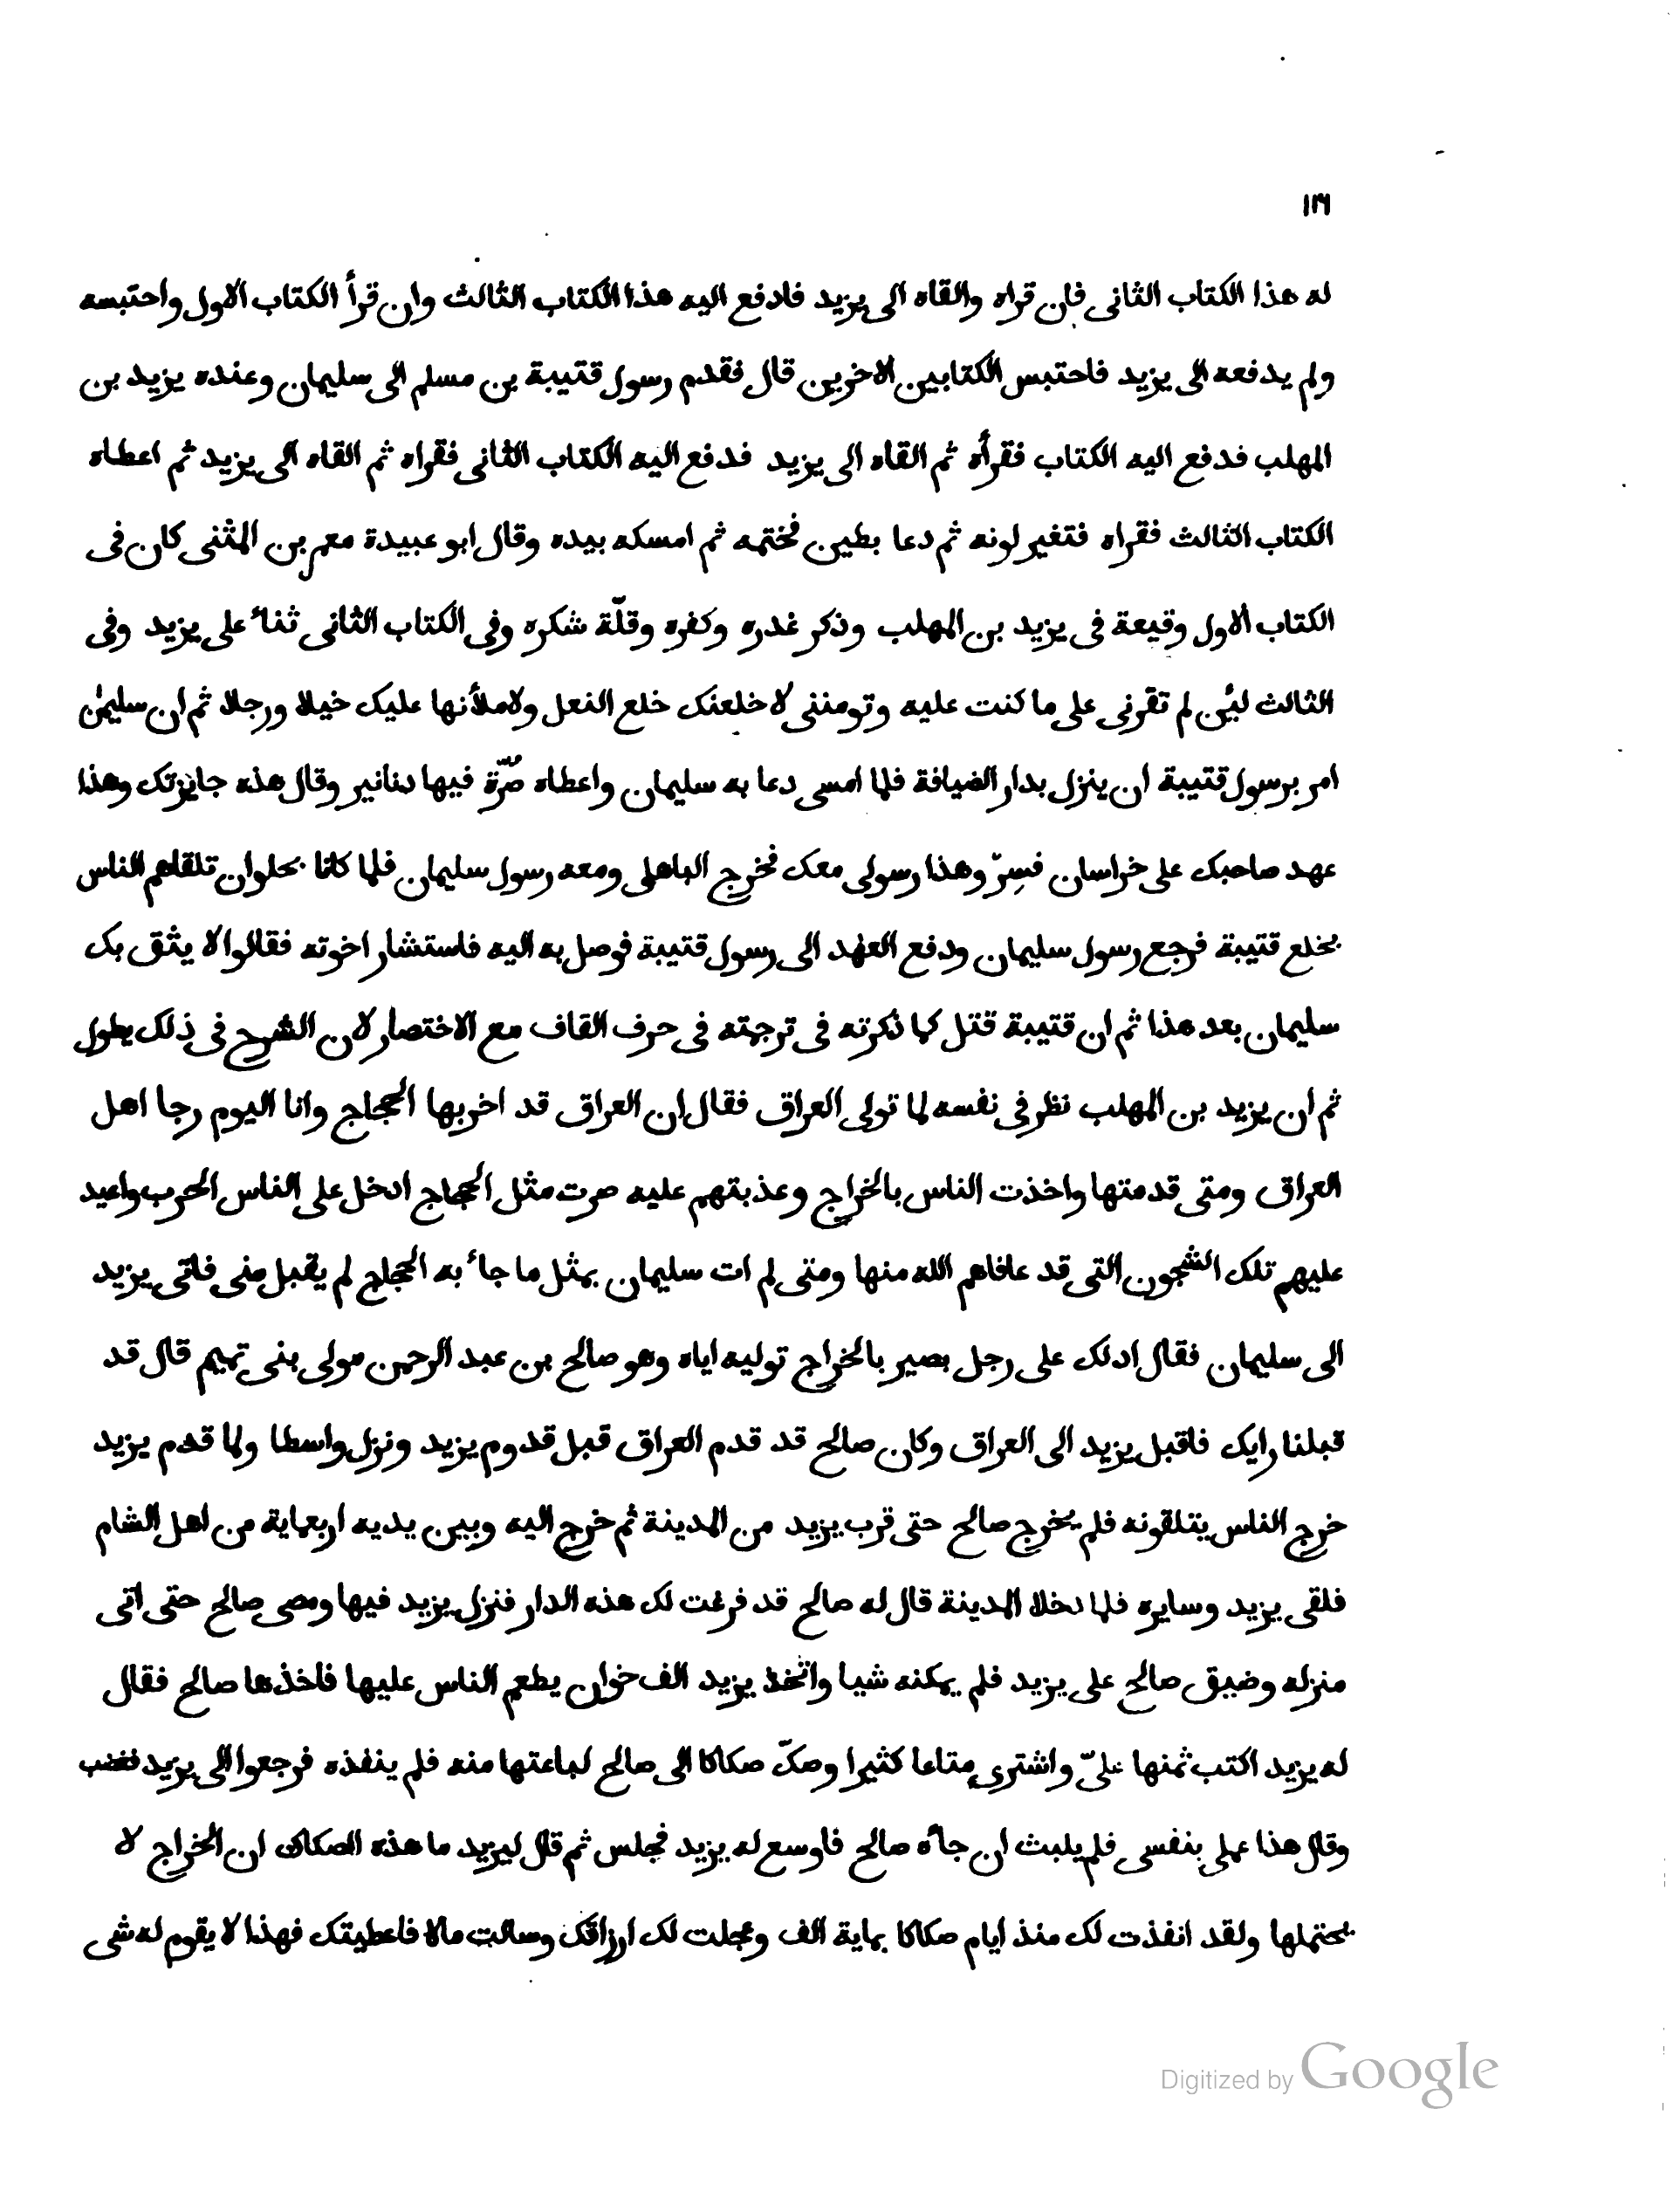 ١٢٦
له هذا الكتاب الثانى فان قراه والقاه الى يزيد فادفع اليه هذا الكتاب الثالث وان قرأ الكتاب الاول واحتبسه
ولم يدفعه الى يزيد فاحتبس الكتابين الاخرين قال فقدم رسول قتيبة بن مسلم الى سليمان وعنده يزيد بن
المهلب فدفع اليه الكتاب فقرأه ثم القاه الى يزيد فدفع اليه الكتاب الثانى فقراه ثم القاه الى يزيد ثم اعطاه
الكتاب الثالث فقراه فتغير لونه ثم دعا بطين فختمه ثم امسكه بيده وقال ابو عبيدة معمر بن المثنى كان فى
الكتاب الاول وقيعة فى يزيد بن المهلب وذكر غدره وكفره وقلّة شكره وفى الكتاب الثانى ثناء على يزيد وفى
الثالث لئن لم تقرنى على ما كنت عليه وتومننى لاخلعنك خلع النعل ولاملأنها عليك خيلا ورجلا ثم ان سليمٰن
امر برسول قتيبة ان ينزل بدار الضيافة فلما امسى دعا به سليمان واعطاه صُرّة فيها دنانير وقال هذه جايزتك وهذا
عهد صاحبك على خراسان فسِرّ وهذا رسولى معك فخرج الباهلى ومعه رسول سليمان فلما كانا بحلوان تلقاهم الناس
بخلع قتيبة فرجع رسول سليمان ودفع العهد الى رسول قتيبة فوصل به اليه فاستشار اخوته فقالوا لا يثق بك
سليمان بعد هذا ثم ان قتيبة قتل كما ذكرته فى ترجمته فى حرف القاف مع الاختصار لان الشرح فى ذلك يطول
ثم ان يزيد بن المهلب نظر فى نفسه لما تولى العراق فقال ان العراق قد اخربها الحجاج وانا اليوم رجا اهل
العراق ومتى قدمتها واخذت الناس بالخراج وعذبتهم عليه صرت مثل الحجاج ادخل على الناس الحرب واعيد
عليهم تلك الشجون التى قد عافاهم الله منها ومتى لم ات سليمان بمثل ما جاء به الحجاج لم يقبل منى فاتى يزيد
الى سليمان فقال ادلك على رجل بصير بالخراج توليه اياه وهو صالح بن عبد الرحمن مولى بنى تميم قال قد
قبلنا رايك فاقبل يزيد الى العراق وكان صالح قد قدم العراق قبل قدوم يزيد ونزل واسطا ولما قدم يزيد
خرج الناس يتلقونه فلم يخرج صالح حتى قرب يزيد من المدينة ثم خرج اليه وبين يديه اربعماية من اهل الشام
فلقى يزيد وسايره فلما دخلا المدينة قال له صالح قد فرغت لك هذه الدار فنزل يزيد فيها ومضى صالح حتى اتى
منزله وضيق صالح على يزيد فلم يمكنه شيا واتّخذ يزيد الف خوان يطعم الناس عليها فاخذها صالح فقال
له يزيد اكتب ثمنها علىّ واشترى متاعا كثيرا وصكّ صكاكا الى صالح لباعتها منه فلم ينفذه فرجعوا الى يزيد فغضب
وقال هذا عملى بنفسى فلم يلبث ان جأه صالح فاوسع له يزيد فجلس ثم قال ليزيد ما هذه الصكاك ان الخراج لا
يحتملها ولقد انفذت لك منذ ايام صكاكا بماية الف وعجلت لك ارزاقك وسالت مالا فاعطيتك فهذا لا يقوم له شى
Digitized by Google